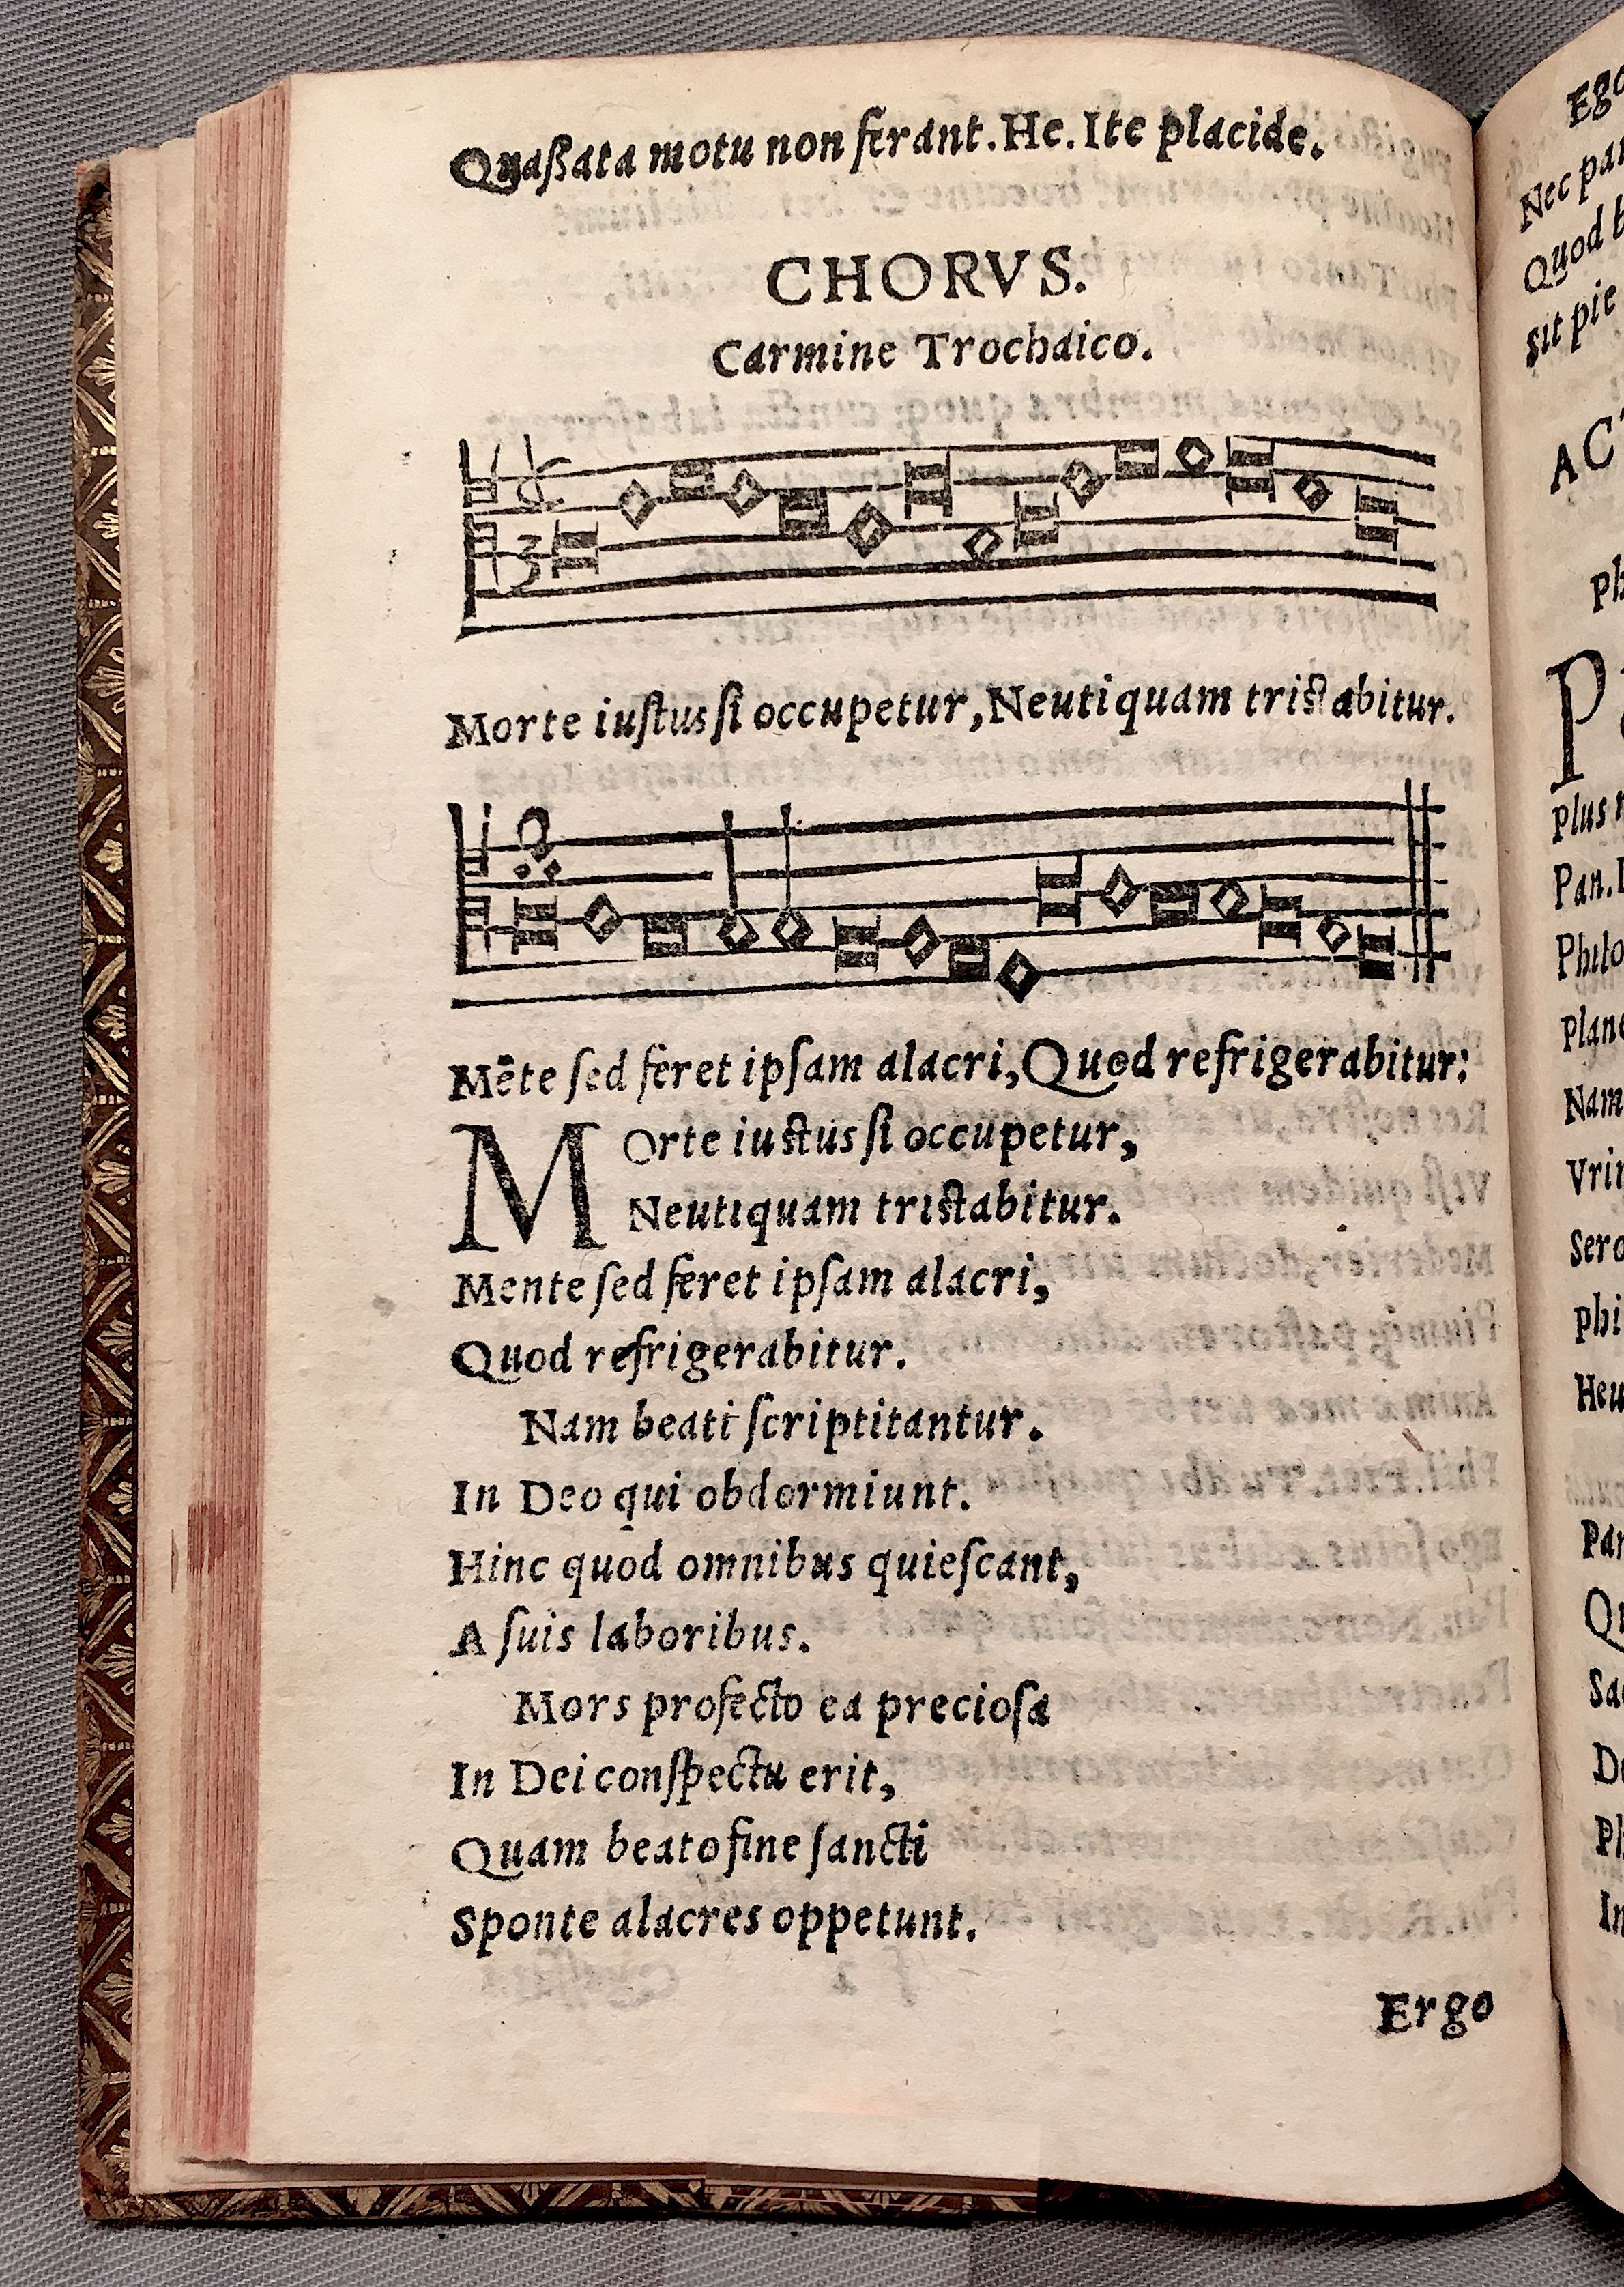 Quaßata motu non ferant. He. Ite placide.
CHORVS.
Carmine Trochaico.
3
Morte iuſtus ſi occupetur, Neutiquam tristabitur.
Mēte ſed feret ipſam alacri, Quod refrigerabitur:
MOrte iustus ſi occupetur,
Neutiquam tristabitur.
Mente ſed feret ipſam alacri,
Quod refrigerabitur.
Nam beati ſcriptitantur.
In Deo qui obdormiunt.
Hinc quod omnibus quieſcant,
A ſuis laboribus.
Mors profecto ea precioſa
In Dei conſpectu erit,
Quam beato fine ſancti
Sponte alacres oppetunt.
Ergo
Ego
Nec
Quod
sit pie
Plus
Pan.
Nam